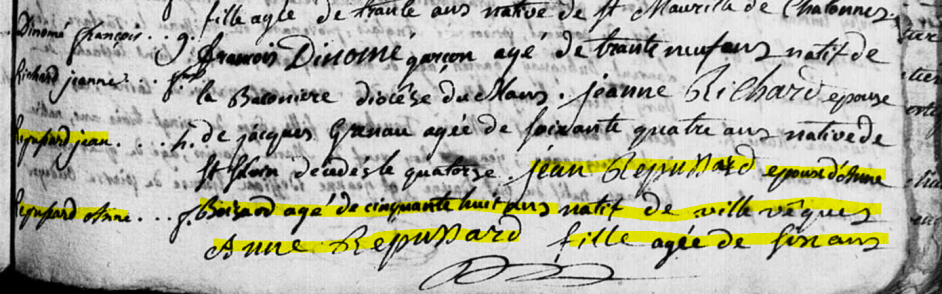 fille agée de trante ans native de St Maurille de Chalonnes.
Dinomé françois . . g. francois Dinomé garçon agé de trante neuf ans natif de
Richard jeanne . . . f. la Baconiere diocése du Mans . jeanne Richard epouse
Repussard jean . . . h. de jacques Granau agée de soixante quatre ans native de
St decedés le quatorze . jean Repussard epoux d'Anne
Repussard Anne . . . f. Boisard agé de cinquante huit ans natif de ville vêques
Anne Repussard fille agée de six ans